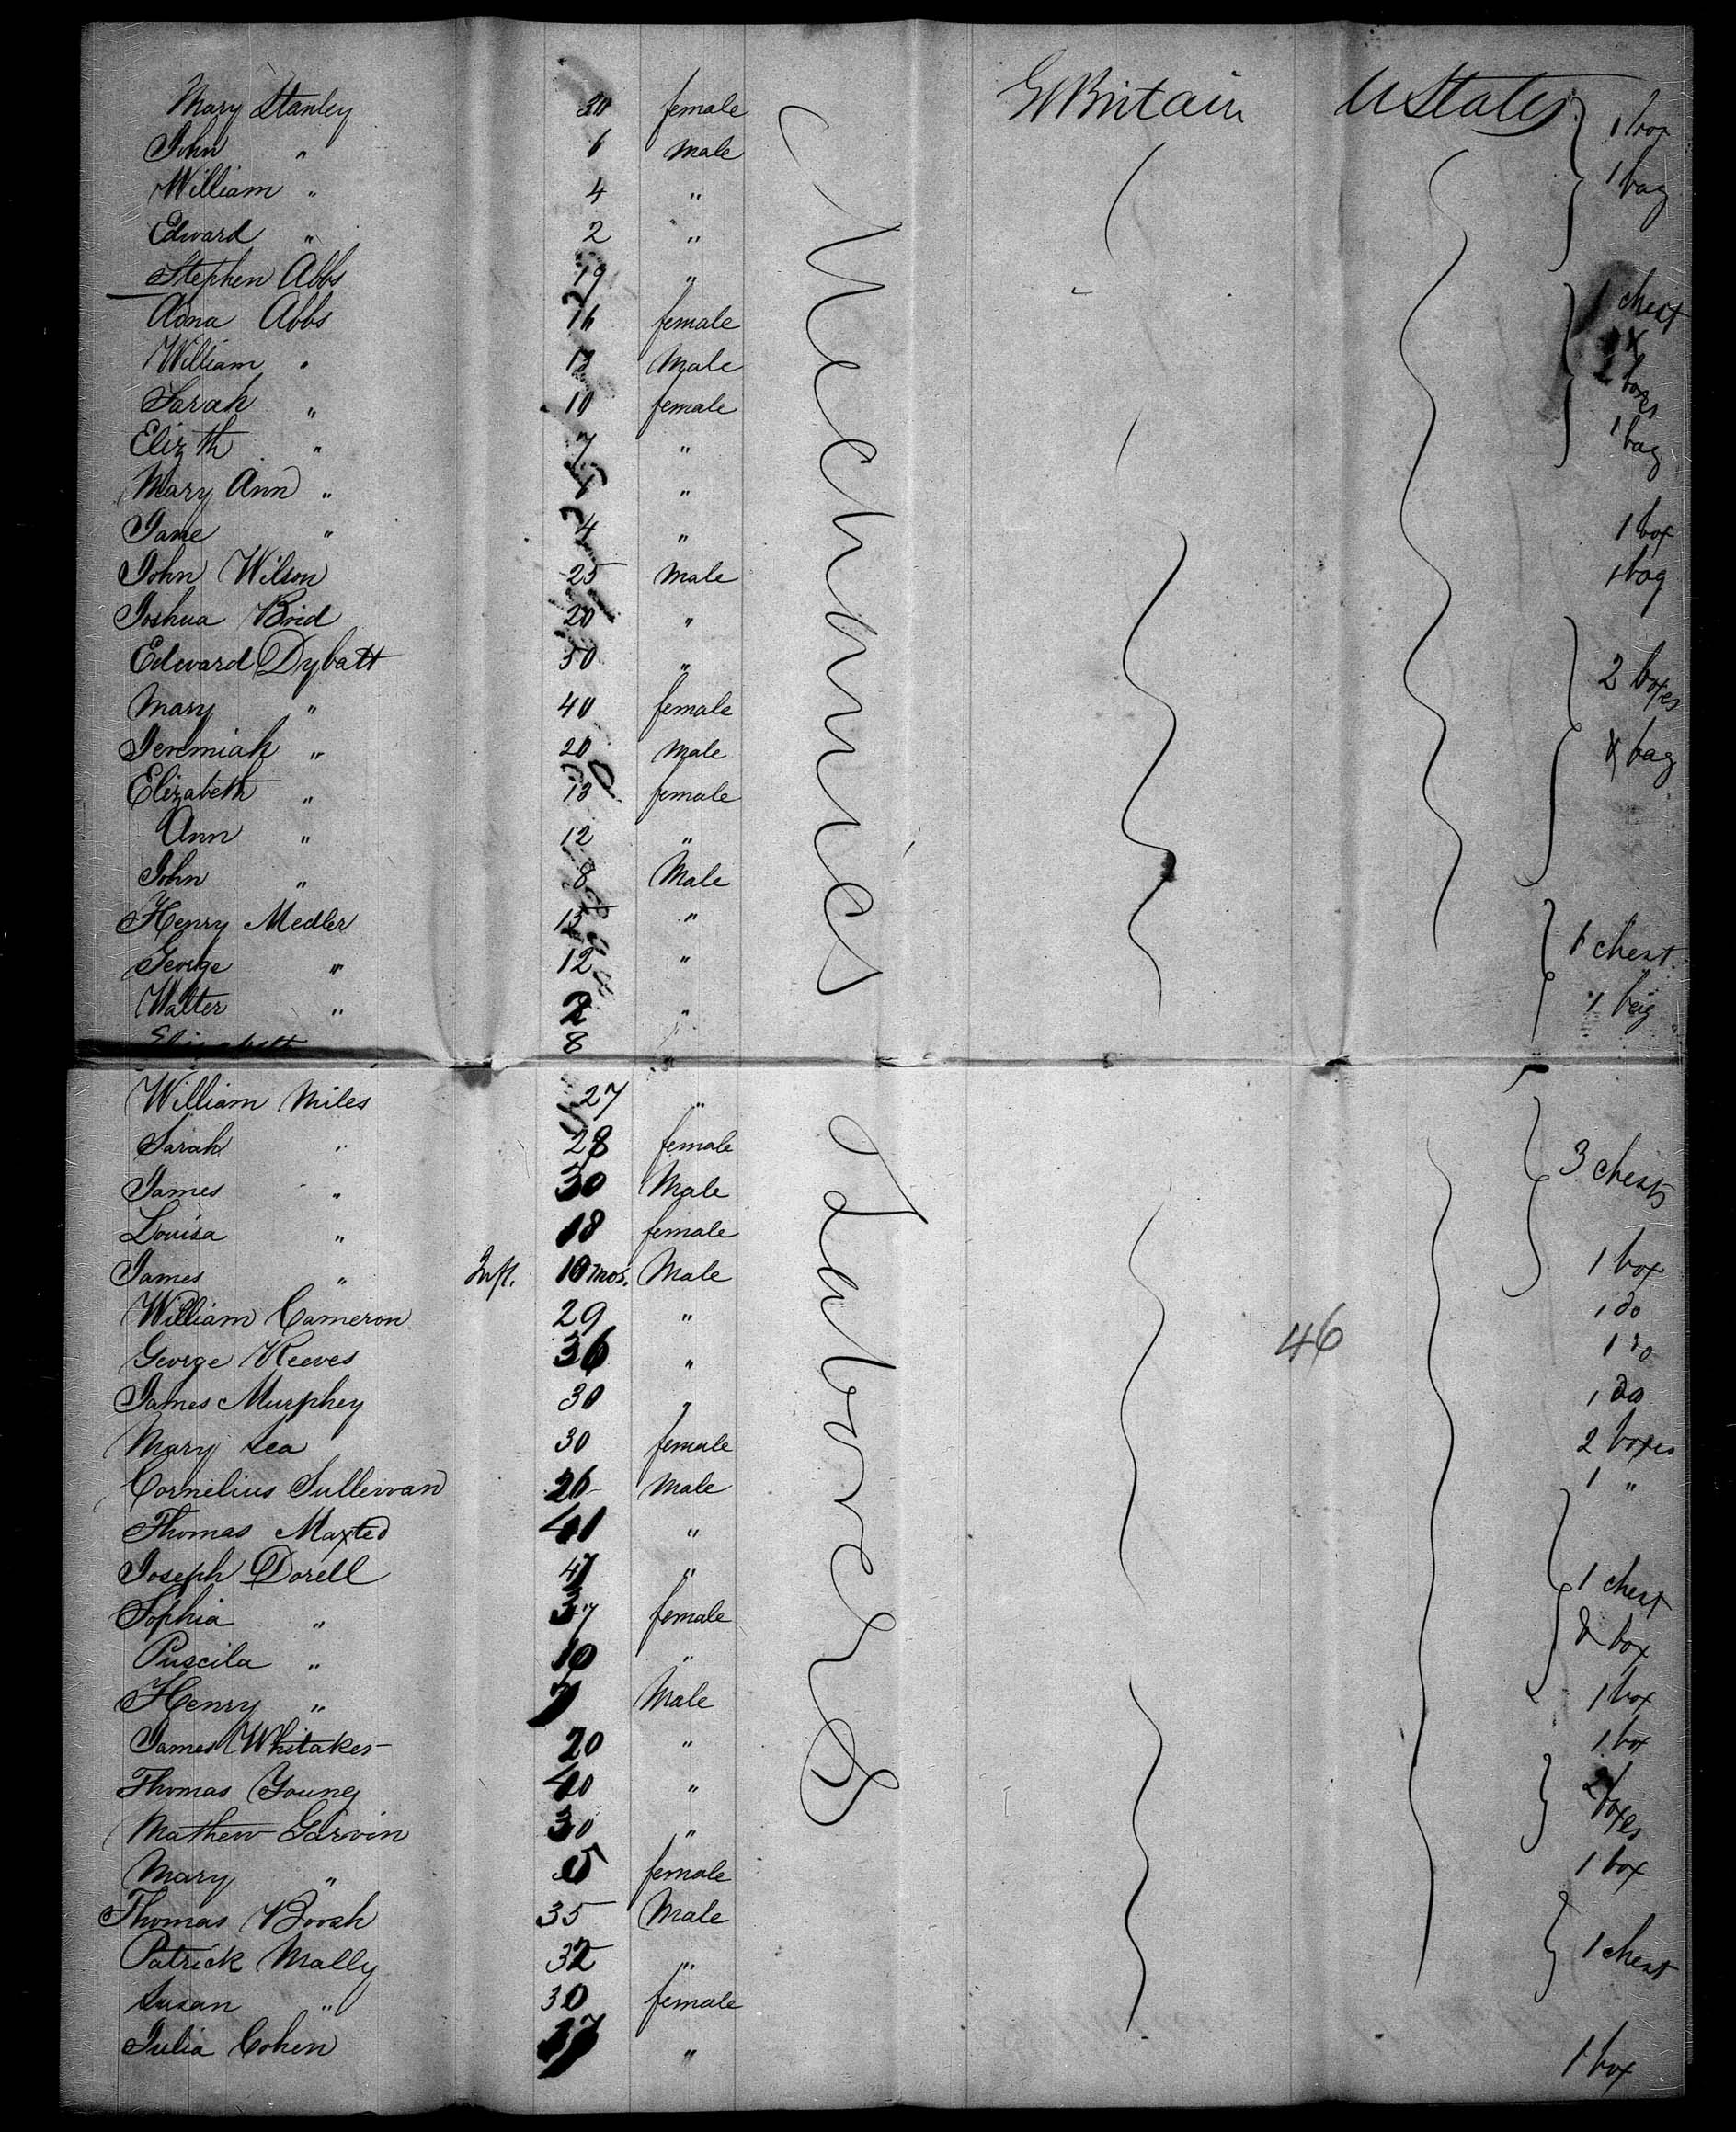 Mary Stanley 30 female Gt Britain U States 1 box
John " 6 male
William " 4 " 1 bag
Edward " 2 "
Stephen Abbs 19 "
Adna Abbs 16 female 1 chest
William " 13 Male &
Sarah " 10 female 2 boxes
Elizth " 7 " 1 bag
Mary Ann " "
Jane " 4 " 1 box
John Wilson 25 Male 1 bag
Joshua Brid 20 "
Edward Dybatt 50 " 2 boxes
Mary " 40 female
Jeremiah " 20 Male & bag
Elizabeth " 13 female
Ann " 12 "
John " 8 Male
Henry Medler 15 "
George " 12 " 1 chest
Walter " 2 " 1 bag
Elizabeth 8 "
Mechanics
William Miles 27 "
Sarah " 28 female 3 chests
James " 30 Male
Louisa " 18 female
James " Inft. 10 mos. Male 1 box
William Cameron 29 " 1 do
George Reeves 36 " 46 1 do
James Murphey 30 " 1 do
Mary Lea 30 female 2 boxes
Cornelius Sullewan 26 Male 1 "
Thomas Maxted 41 "
Joseph Dorell 47 " 1 chest
Sophia " 37 female
Puscila " 10 " & box
Henry " 7 Male 1 box
James Whitaker 20 " 1 box
Thomas Young 40 " 2 boxes
Mathew Garvin 30 "
Mary " 5 female 1 box
Thomas Boosh 35 Male
Patrick Mally 32 " 1 chest
Susan " 30 female
Julia Cohen " 1 box
Laborers